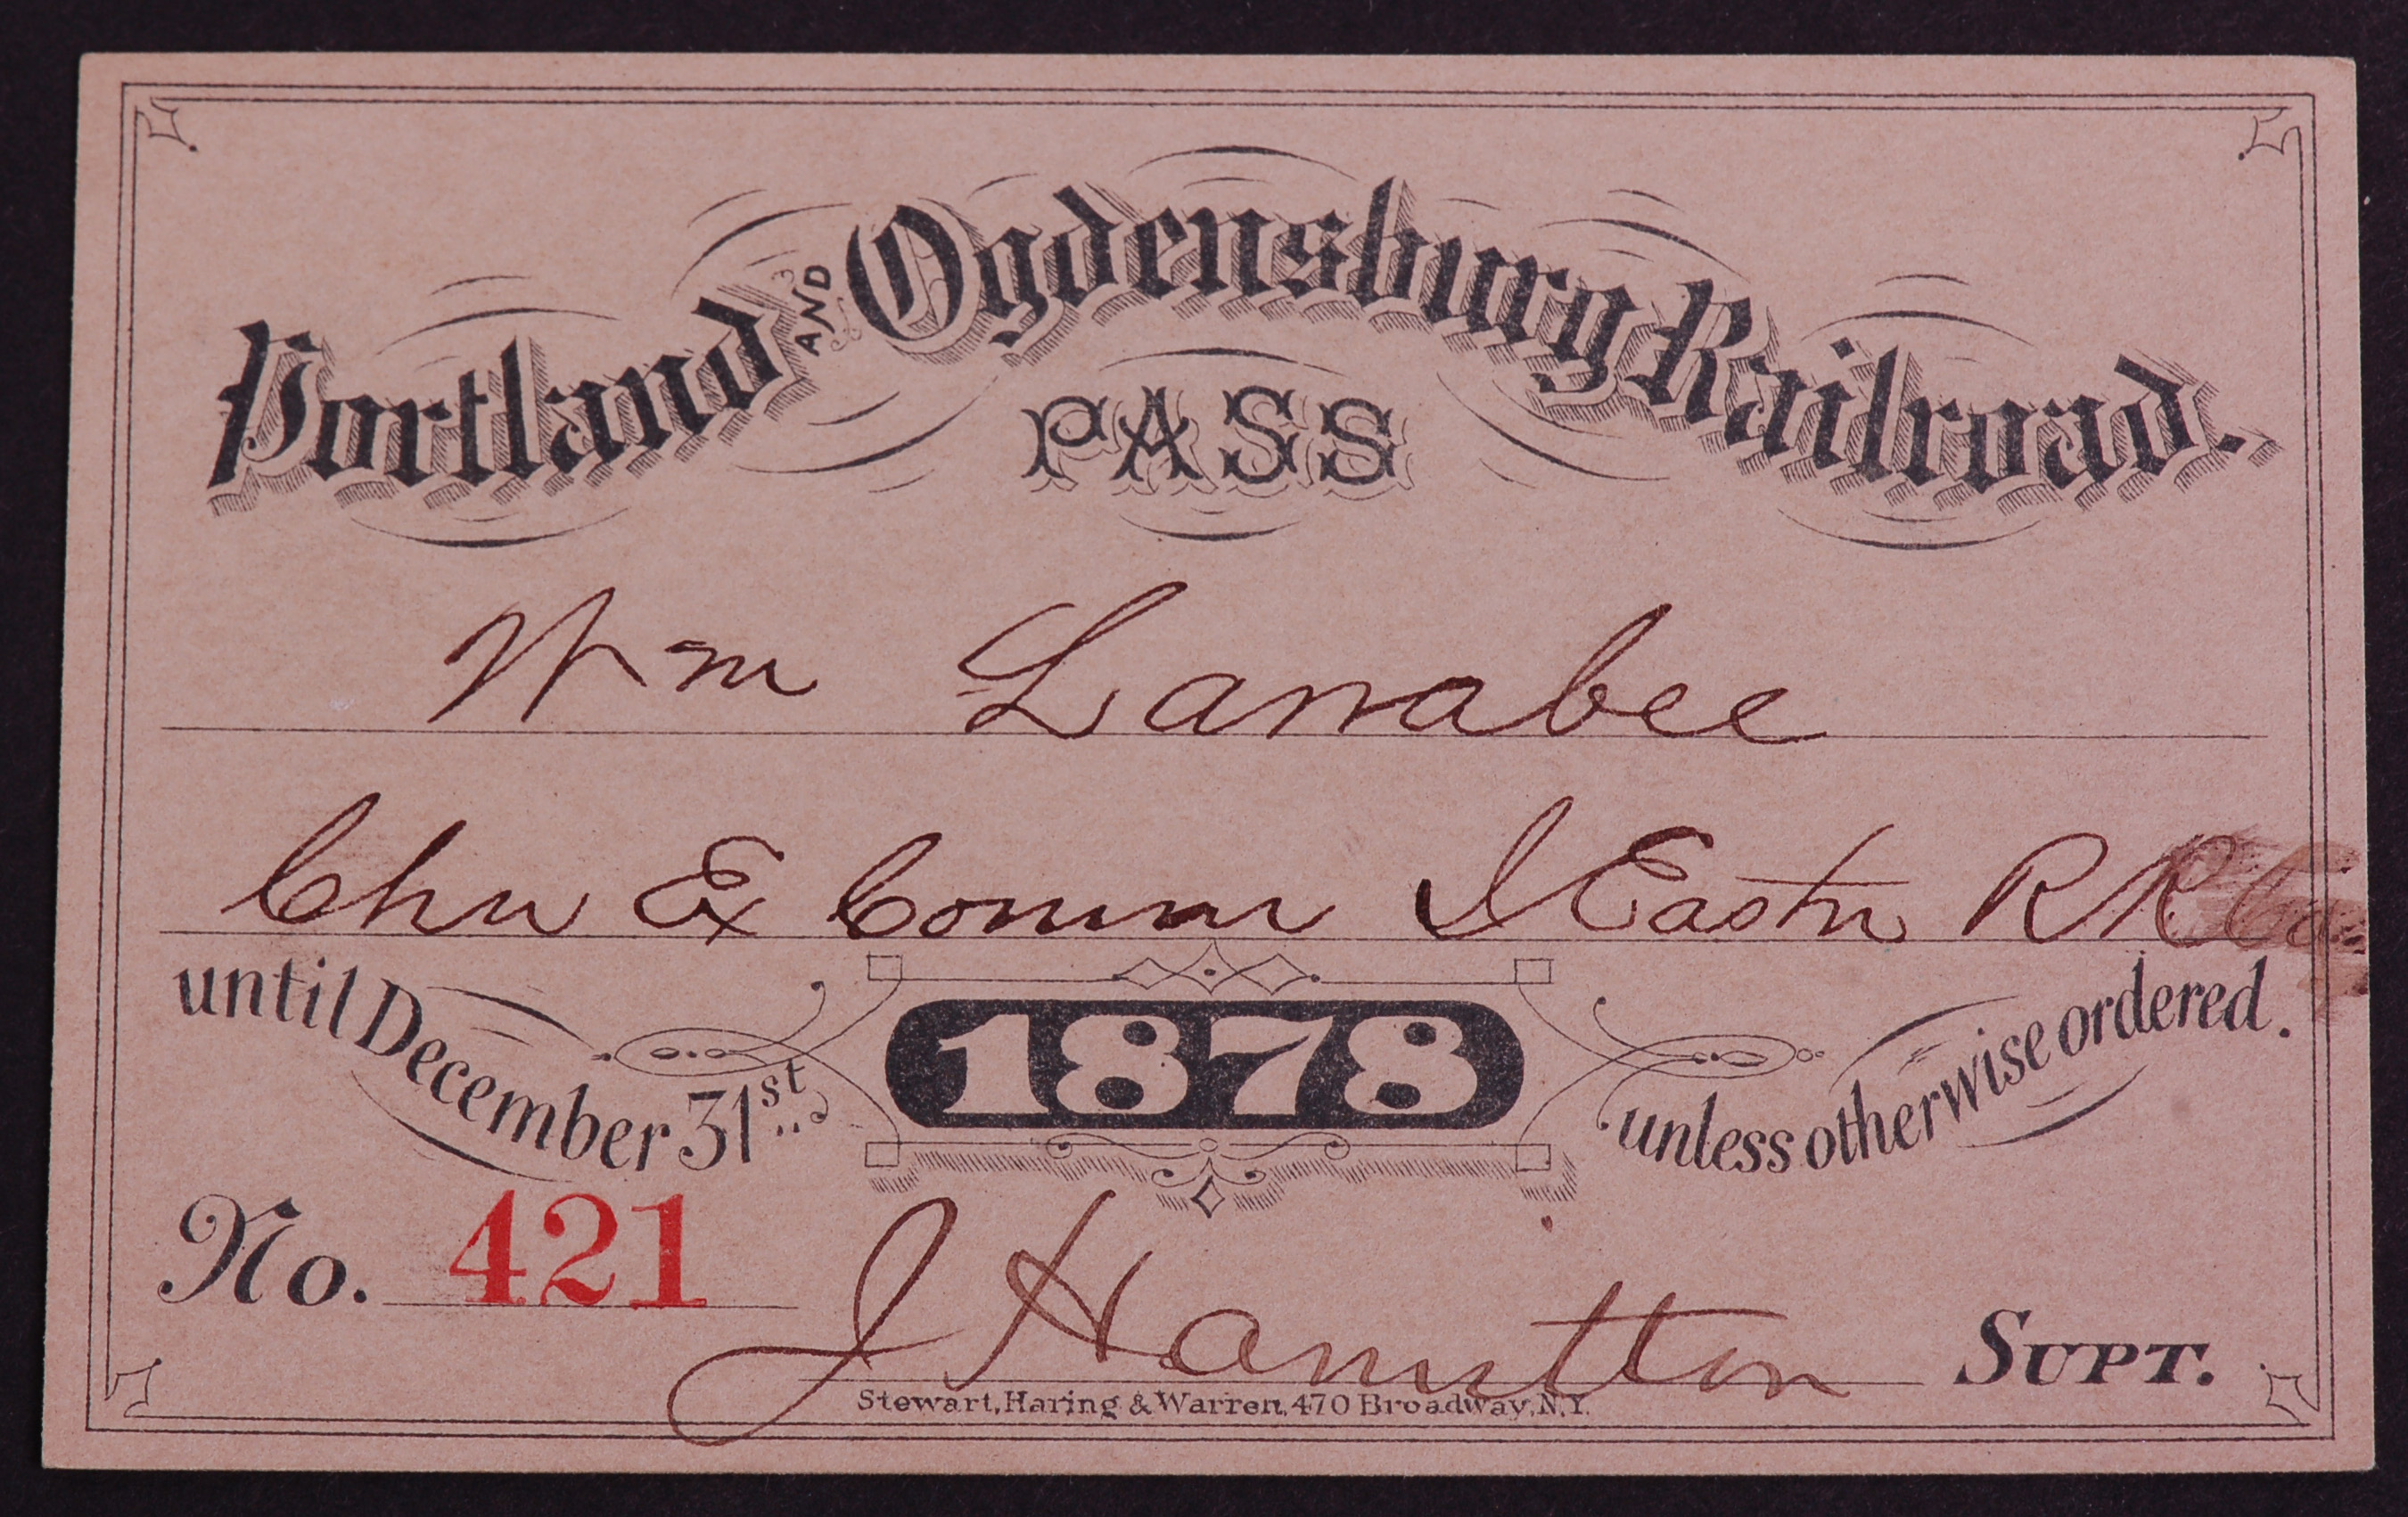 Portland AND Ogdensburg Railroad.
PASS
Wm Larrabee
Chn Ex Comm I Eastn RR Co
until December 31st 1878 unless otherwise ordered.
No. 421
J Hamilton SUPT.
Stewart, Haring & Warren, 470 Broadway, N.Y.